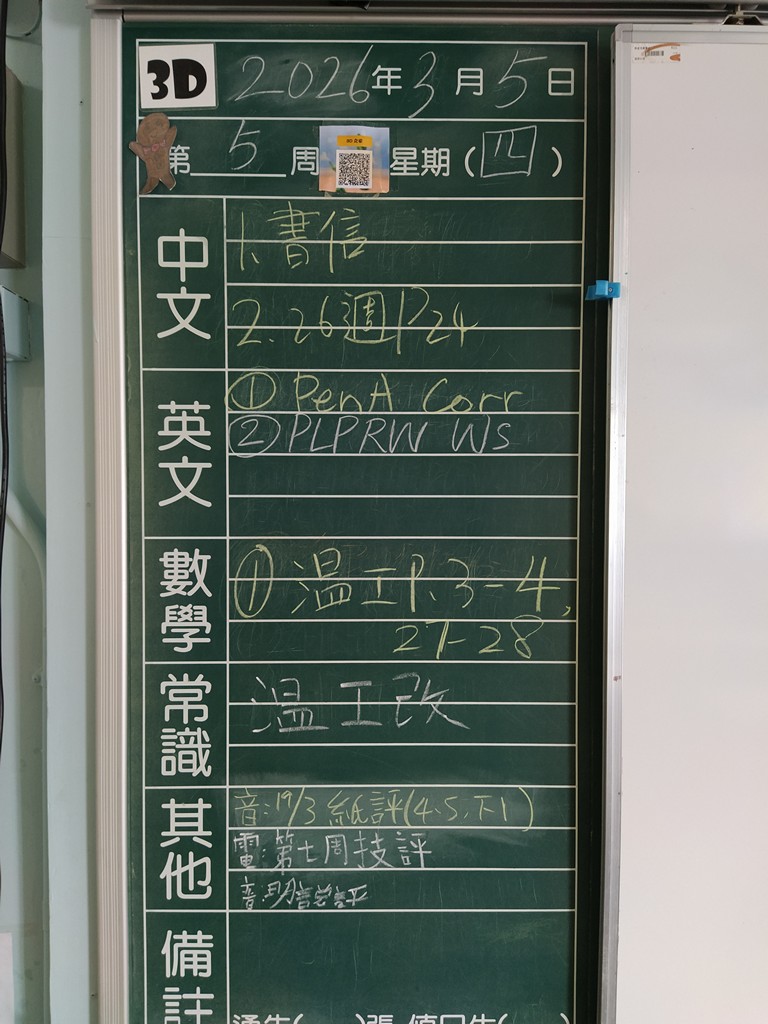 3D 2026年3月5日
第5周 星期(四)
中文
1. 書信
2. 26週P24
英文
① Pen A Corr
② PLPRW WS
數學
① 溫工P.3-4,
27-28
常識
溫工改
其他
音:19/3 紙評(4、5、下1)
電:第七周技評
備註
通告( )張 值日生( )